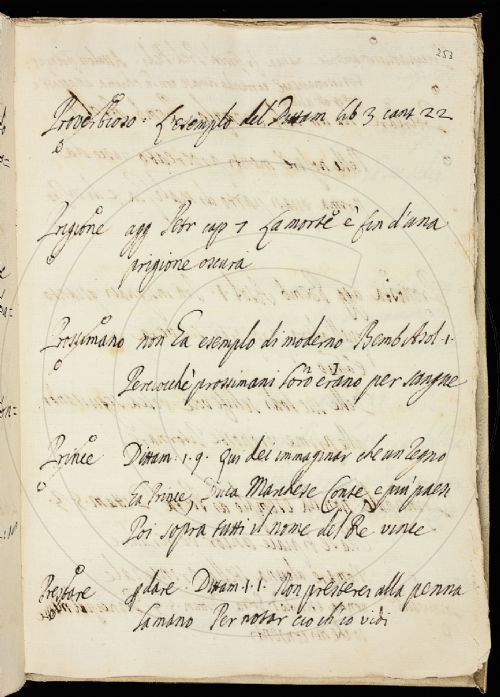 253
Proverbioso. L'esemplo del Dittam lib 3 cant 22
Prigione agg Petr cap 7 La morte è fin d'una
prigione oscura
Prossimano non ha esemplo di moderno Bemb Asol. 1.
Perciocchè prossimani loro erano per sangue
Prince Dittam. 1. 9. Qui dei immaginar che un Regno
Ha Prince, Duca Marchese Conte e più paesi
Poi sopra tutti il nome del Re vince
Prestare p dare. Dittam. 1. 1. Non presterei alla penna
la mano Per notar ciò ch'io vidi